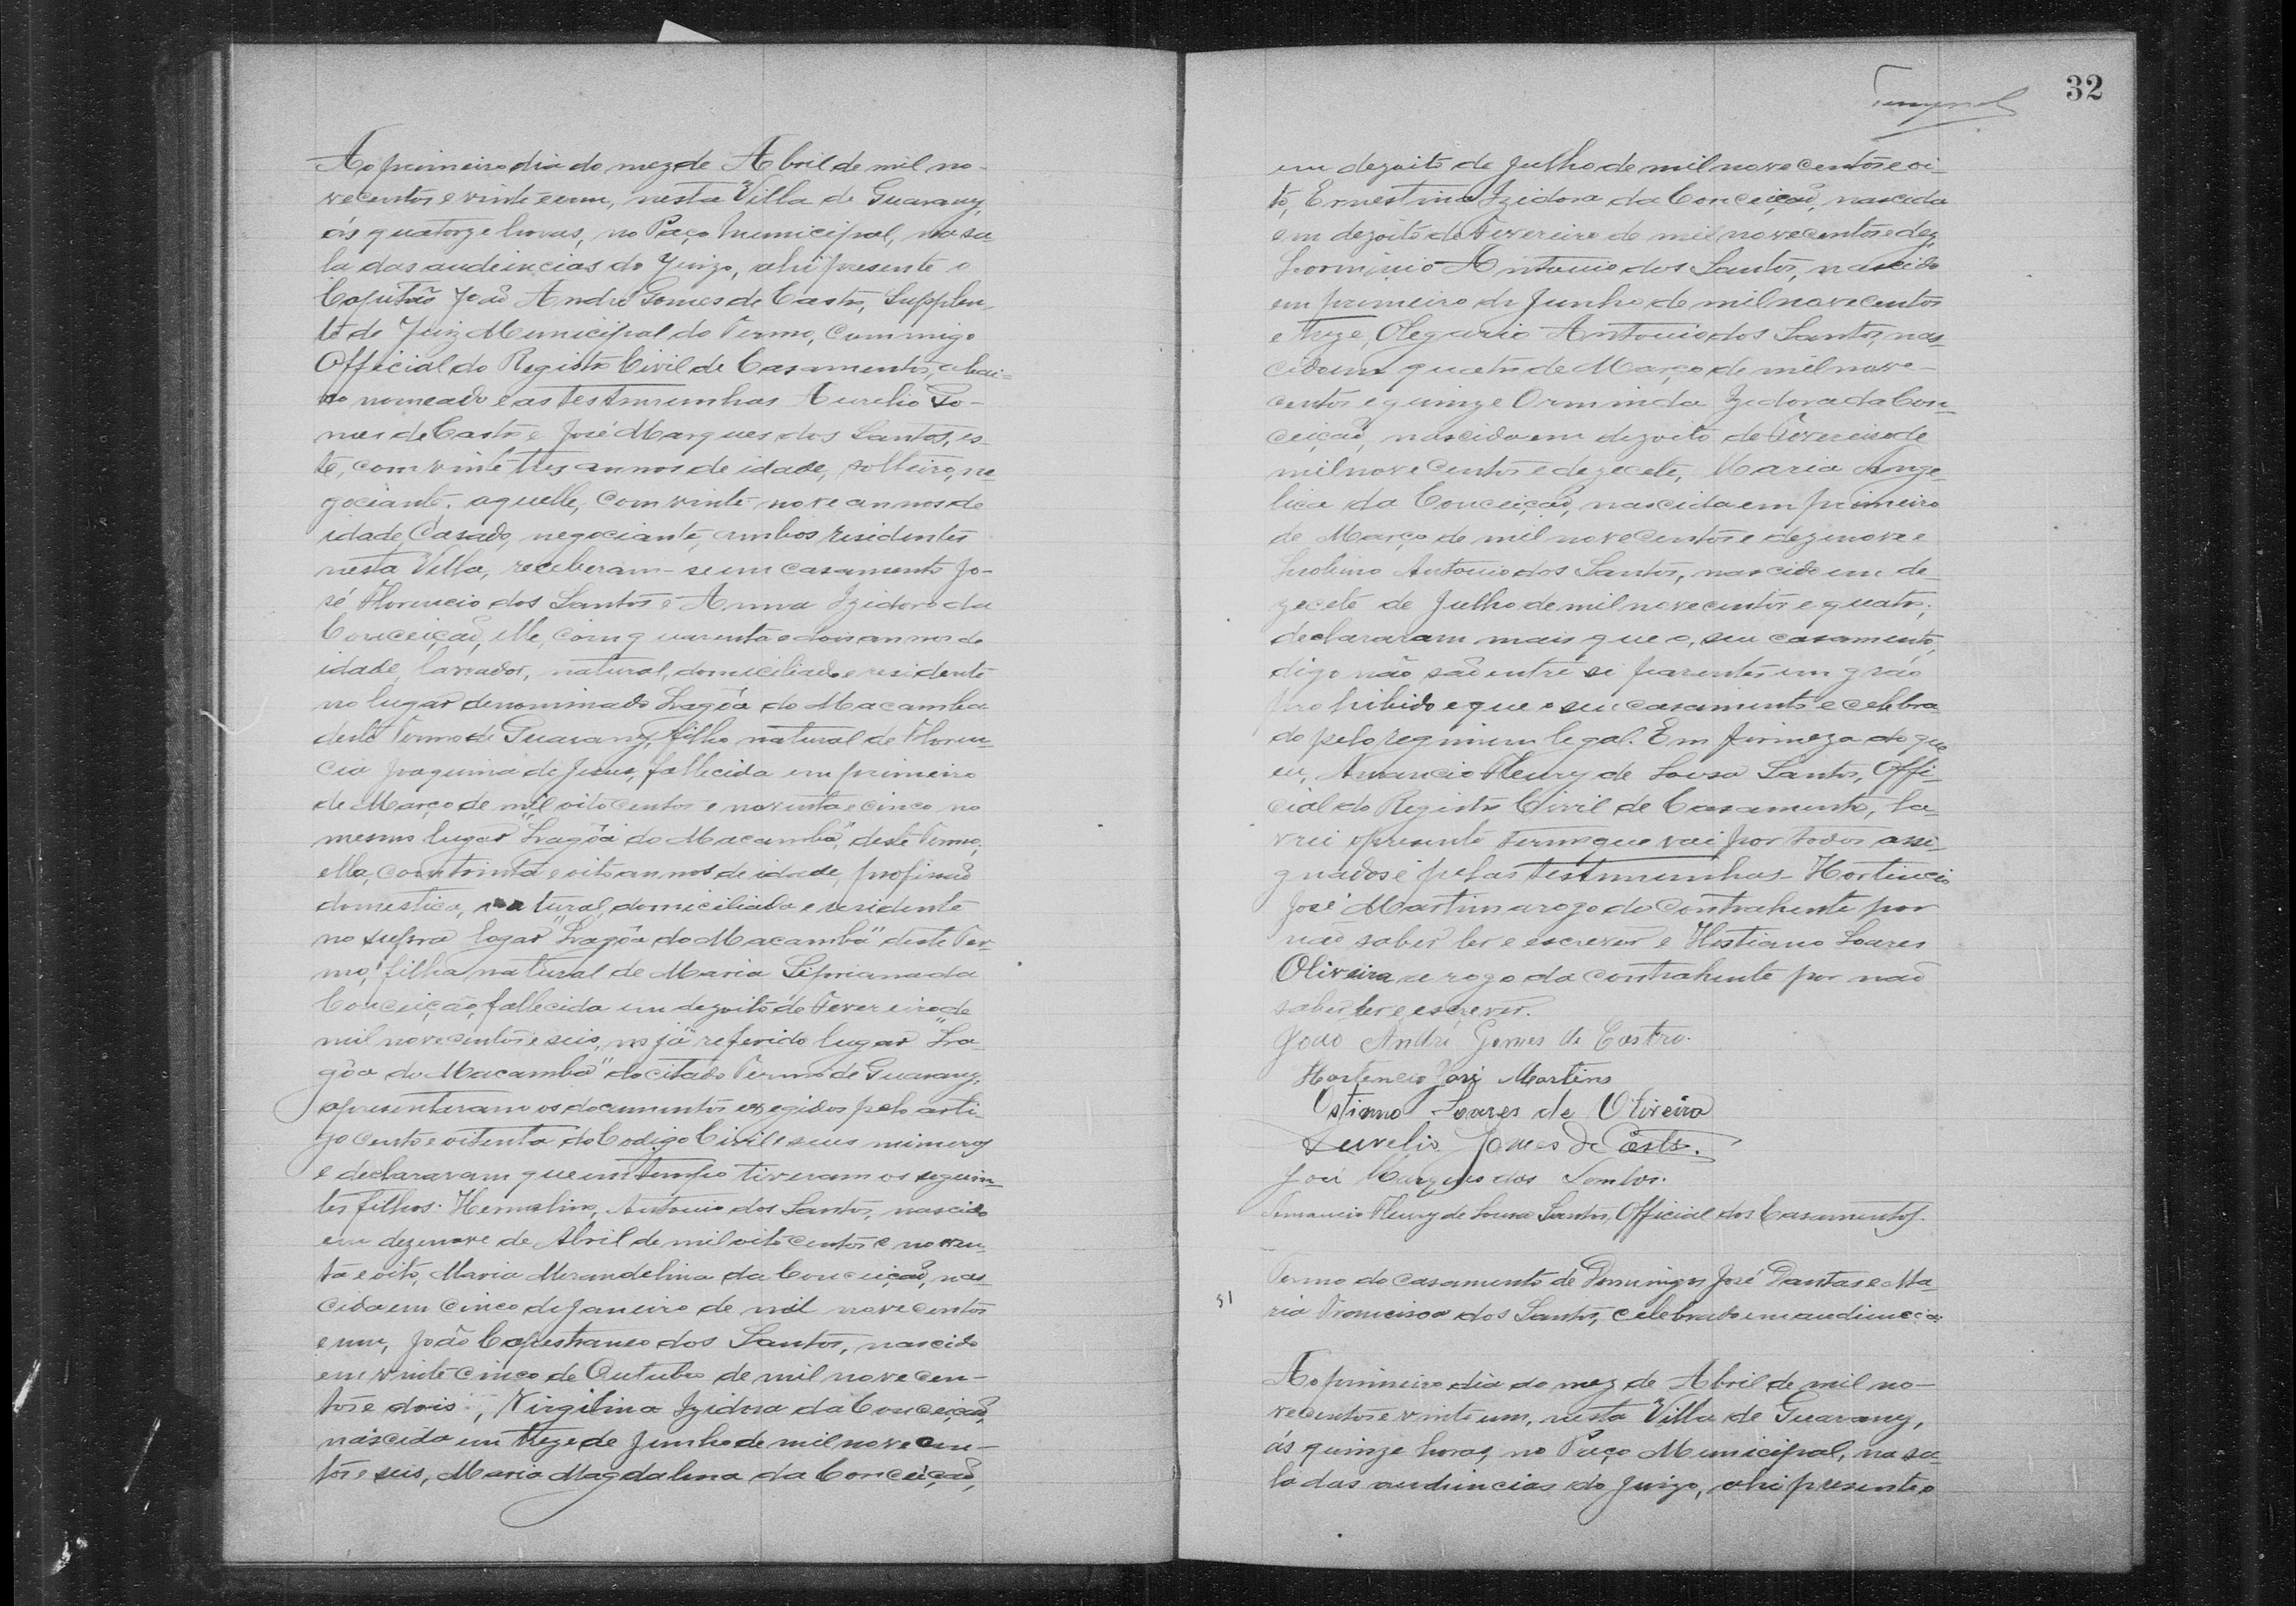 Ao primeiro dia do mez de Abril de mil no-
vecentos e vinte e um, nesta Villa de Guarany,
ás quatorze horas, no Paço Municipal, na sa-
la das audiencias do Juizo, ahi presente o
Capitão João André Gomes de Castro, Supplen-
te do Juiz Municipal do Termo, commigo
Official do Registro Civil de Casamentos, abai-
xo nomeado e as testmunhas Aurelio Go-
mes de Castro e José Marques dos Santos, es-
te, com vinte tres annos de idade, solteiro, ne-
gociante, aquelle, com vinte-nove annos de
idade, Casado, negociante, ambos residentes
nesta Villa, receberam-se em casamento Jo-
sé Florencio dos Santos e Anna Izidora da
Conceição, elle, com quarenta e dois annos de
idade, lavrador, natural, domiciliado e residente
no lugar denominado Lagôa do Macamba
deste Termo de Guarany, filho natural de Floren-
cia Joaquina de Jesus, fallecida em primeiro
de Março de mil oito centos e noventa e cinco no
mesmo lugar "Lagôa do Macamba", deste Termo,
ella, com trinta e oito annos de idade, profissão
domestica, natural, domiciliada e residente
no supra logar "Lagôa do Macamba" deste Ter-
mo, filha natural de Maria Sipriana da
Conceição, fallecida em dezoito de Fevereiro de
mil novecentos e seis, no já referido lugar "La-
gôa do Macamba" do citado Termo de Guarany,
apresentaram os documentos exegidos pelo arti-
go cento e oitenta do Codigo Civil e seus numeros
e declararam que em tempo tiveram os seguin-
tes filhos: Antonio dos Santos, nascido
em dezenove de Abril de mil oito centos e noven-
ta e oito, Maria Merandelina da Conceição, nas-
cida em cinco de Janeiro de mil novecentos
e um, João Capestraneo dos Santos, nascido
em vinte cinco de Outubro de mil novecen-
tos e dois, Virgilina Izidora da Conceição,
nascida em treze de Junho de mil novecen-
tos e seis, Maria Magdalena da Conceição,
32
em dezoito de Julho de mil novecentos e oi-
to, Ernestina Izidora da Conceição, nascida
em dezoito de Fevereiro de mil novecentos e dez,
Antonio dos Santos, nascido
em primeiro de Junho de mil novecentos
e treze, Olegario Antonio dos Santos, nas-
cido em quatro de Março de mil nove-
centos e quinze Orminda Izidora da Con-
ceição, nascida em dezoito de Fevereiro de
mil novecentos e dezecete, Maria Ange-
lica da Conceição, nascida em primeiro
de Março de mil novecentos e dezenove e
Antonio dos Santos, nascido em de-
zecete de Julho de mil novecentos e quatro;
declararam mais que o seu casamento,
digo não são entre si parentes em gráo
prohibido e que o seu casamento e celebra-
do pelo regimem legal. Em firmeza do que
eu, Amancio Fleury de Sousa Santos, Offi-
cial do Registro Civil de Casamento, la-
vrei o presente termo que vai por todos assi-
gnados e pelas testmunhas Hortencio
José Martim arogo do contrahente por
não saber ler e escrever e Hostiano Soares
Oliveira a rogo da contrahente por não
saber ler e escrever.
João André Gomes de Castro.
Hortencio José Martins
Ostiano Soares de Oliveira
Aurelio Gomes de Castro.
José Marques dos Santos.
Amancio Fleury de Sousa Santos, Official dos Casamentos.
51
Termo do casamento de Domingos José Dantas e Ma-
ria Francisca dos Santos, celebrado em audiencia:
Ao primeiro dia do mez de Abril de mil no-
vecentos e vinte um, nesta Villa de Guarany,
ás quinze horas, no Paço Municipal, na sa-
la das audiencias do Juizo, ahi presente o